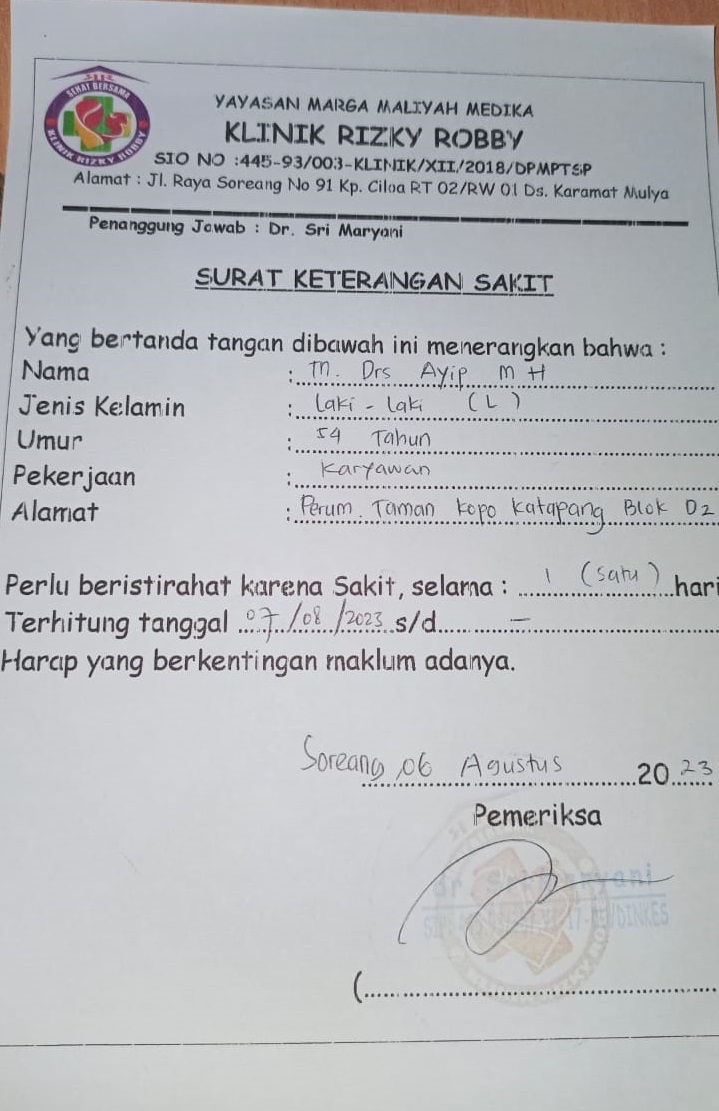 SEHAT BERSAMA
KLINIK RIZKY ROBBY
YAYASAN MARGA MALIYAH MEDIKA
KLINIK RIZKY ROBBY
SIO NO :445-93/003-KLINIK/XII/2018/DPMPTSP
Alamat : Jl. Raya Soreang No 91 Kp. Cilaa RT 02/RW 01 Ds. Karamat Mulya
Penanggung Jawab : Dr. Sri Maryani
SURAT KETERANGAN SAKIT
Yang bertanda tangan dibawah ini menerangkan bahwa :
Nama : M. Drs Ayip M H
Jenis Kelamin : Laki - Laki (L)
Umur : 54 Tahun
Pekerjaan : Karyawan
Alamat : Perum. Taman Kopo Katapang Blok D2
Perlu beristirahat karena Sakit, selama : 1 (Satu) hari
Terhitung tanggal 07/08/2023 s/d -
Harap yang berkentingan maklum adanya.
Soreang, 06 Agustus 2023
Pemeriksa
/DINKES
(